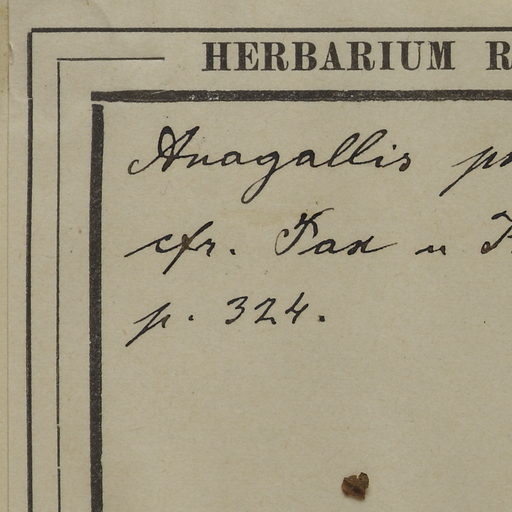 HERBARIUM R
Anagallis
cfr. Pax u
p. 324.